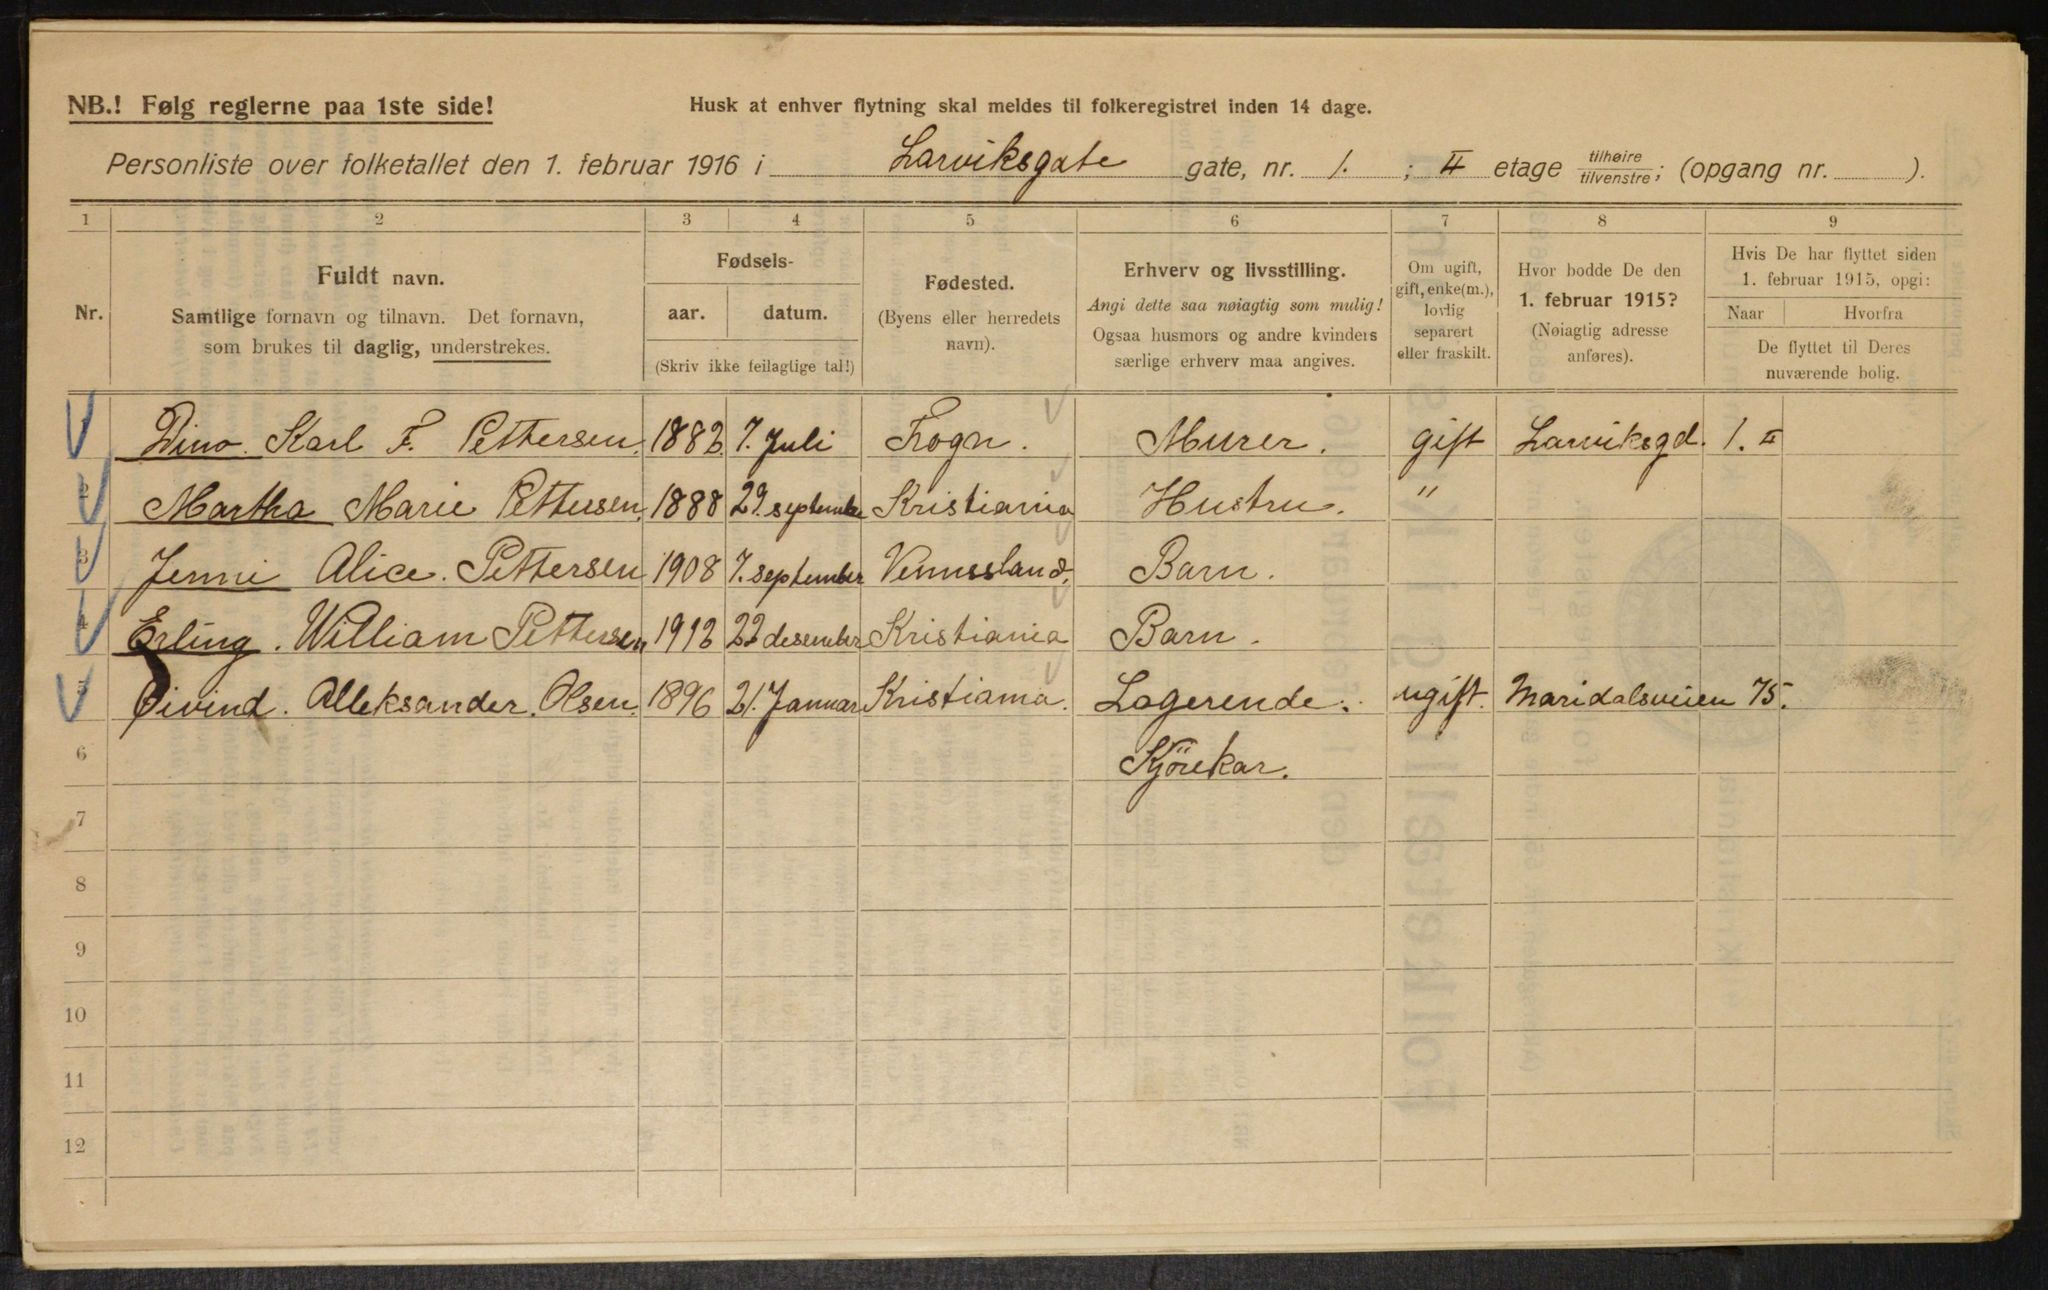 NB.! Følg reglerne paa 1ste side!
Husk at enhver flytning skal meldes til folkeregistret inden 14 dage.
Personliste over folketallet den 1. februar 1916 i Larviksgate gate, nr. 1. ; II etage tilhøire / tilvenstre; (opgang nr. ).
1 2 3 4 5 6 7 8 9
Nr.
Fuldt navn.
Samtlige fornavn og tilnavn. Det fornavn,
som brukes til daglig, understrekes.
Fødsels-
aar. datum.
(Skriv ikke feilagtige tal!)
Fødested.
(Byens eller herredets
navn).
Erhverv og livsstilling.
Angi dette saa nøiagtig som mulig!
Ogsaa husmors og andre kvinders
særlige erhverv maa angives.
Om ugift,
gift, enke(m.),
lovlig
separert
eller fraskilt.
Hvor bodde De den
1. februar 1915?
(Nøiagtig adresse
anføres).
Hvis De har flyttet siden
1. februar 1915, opgi:
Naar Hvorfra
De flyttet til Deres
nuværende bolig.
Dino. Karl F. Pettersen. 1882. 7. Juli Frogn. Murer. gift Larviksgd. 1. II
2 Martha Marie Pettersen. 1888 29. september Kristiania Hustru. "
3 Jenni Alice. Pettersen 1908 7. september Vennesland. Barn.
4 Erling. William Pettersen 1912 22 desember Kristiania Barn.
5 Øivind. Alleksander. Olsen. 1896 21. Januar Kristiania. Logerende. ugift. Maridalsveien 75.
6 Kjörekar.
7
8
9
10
11
12